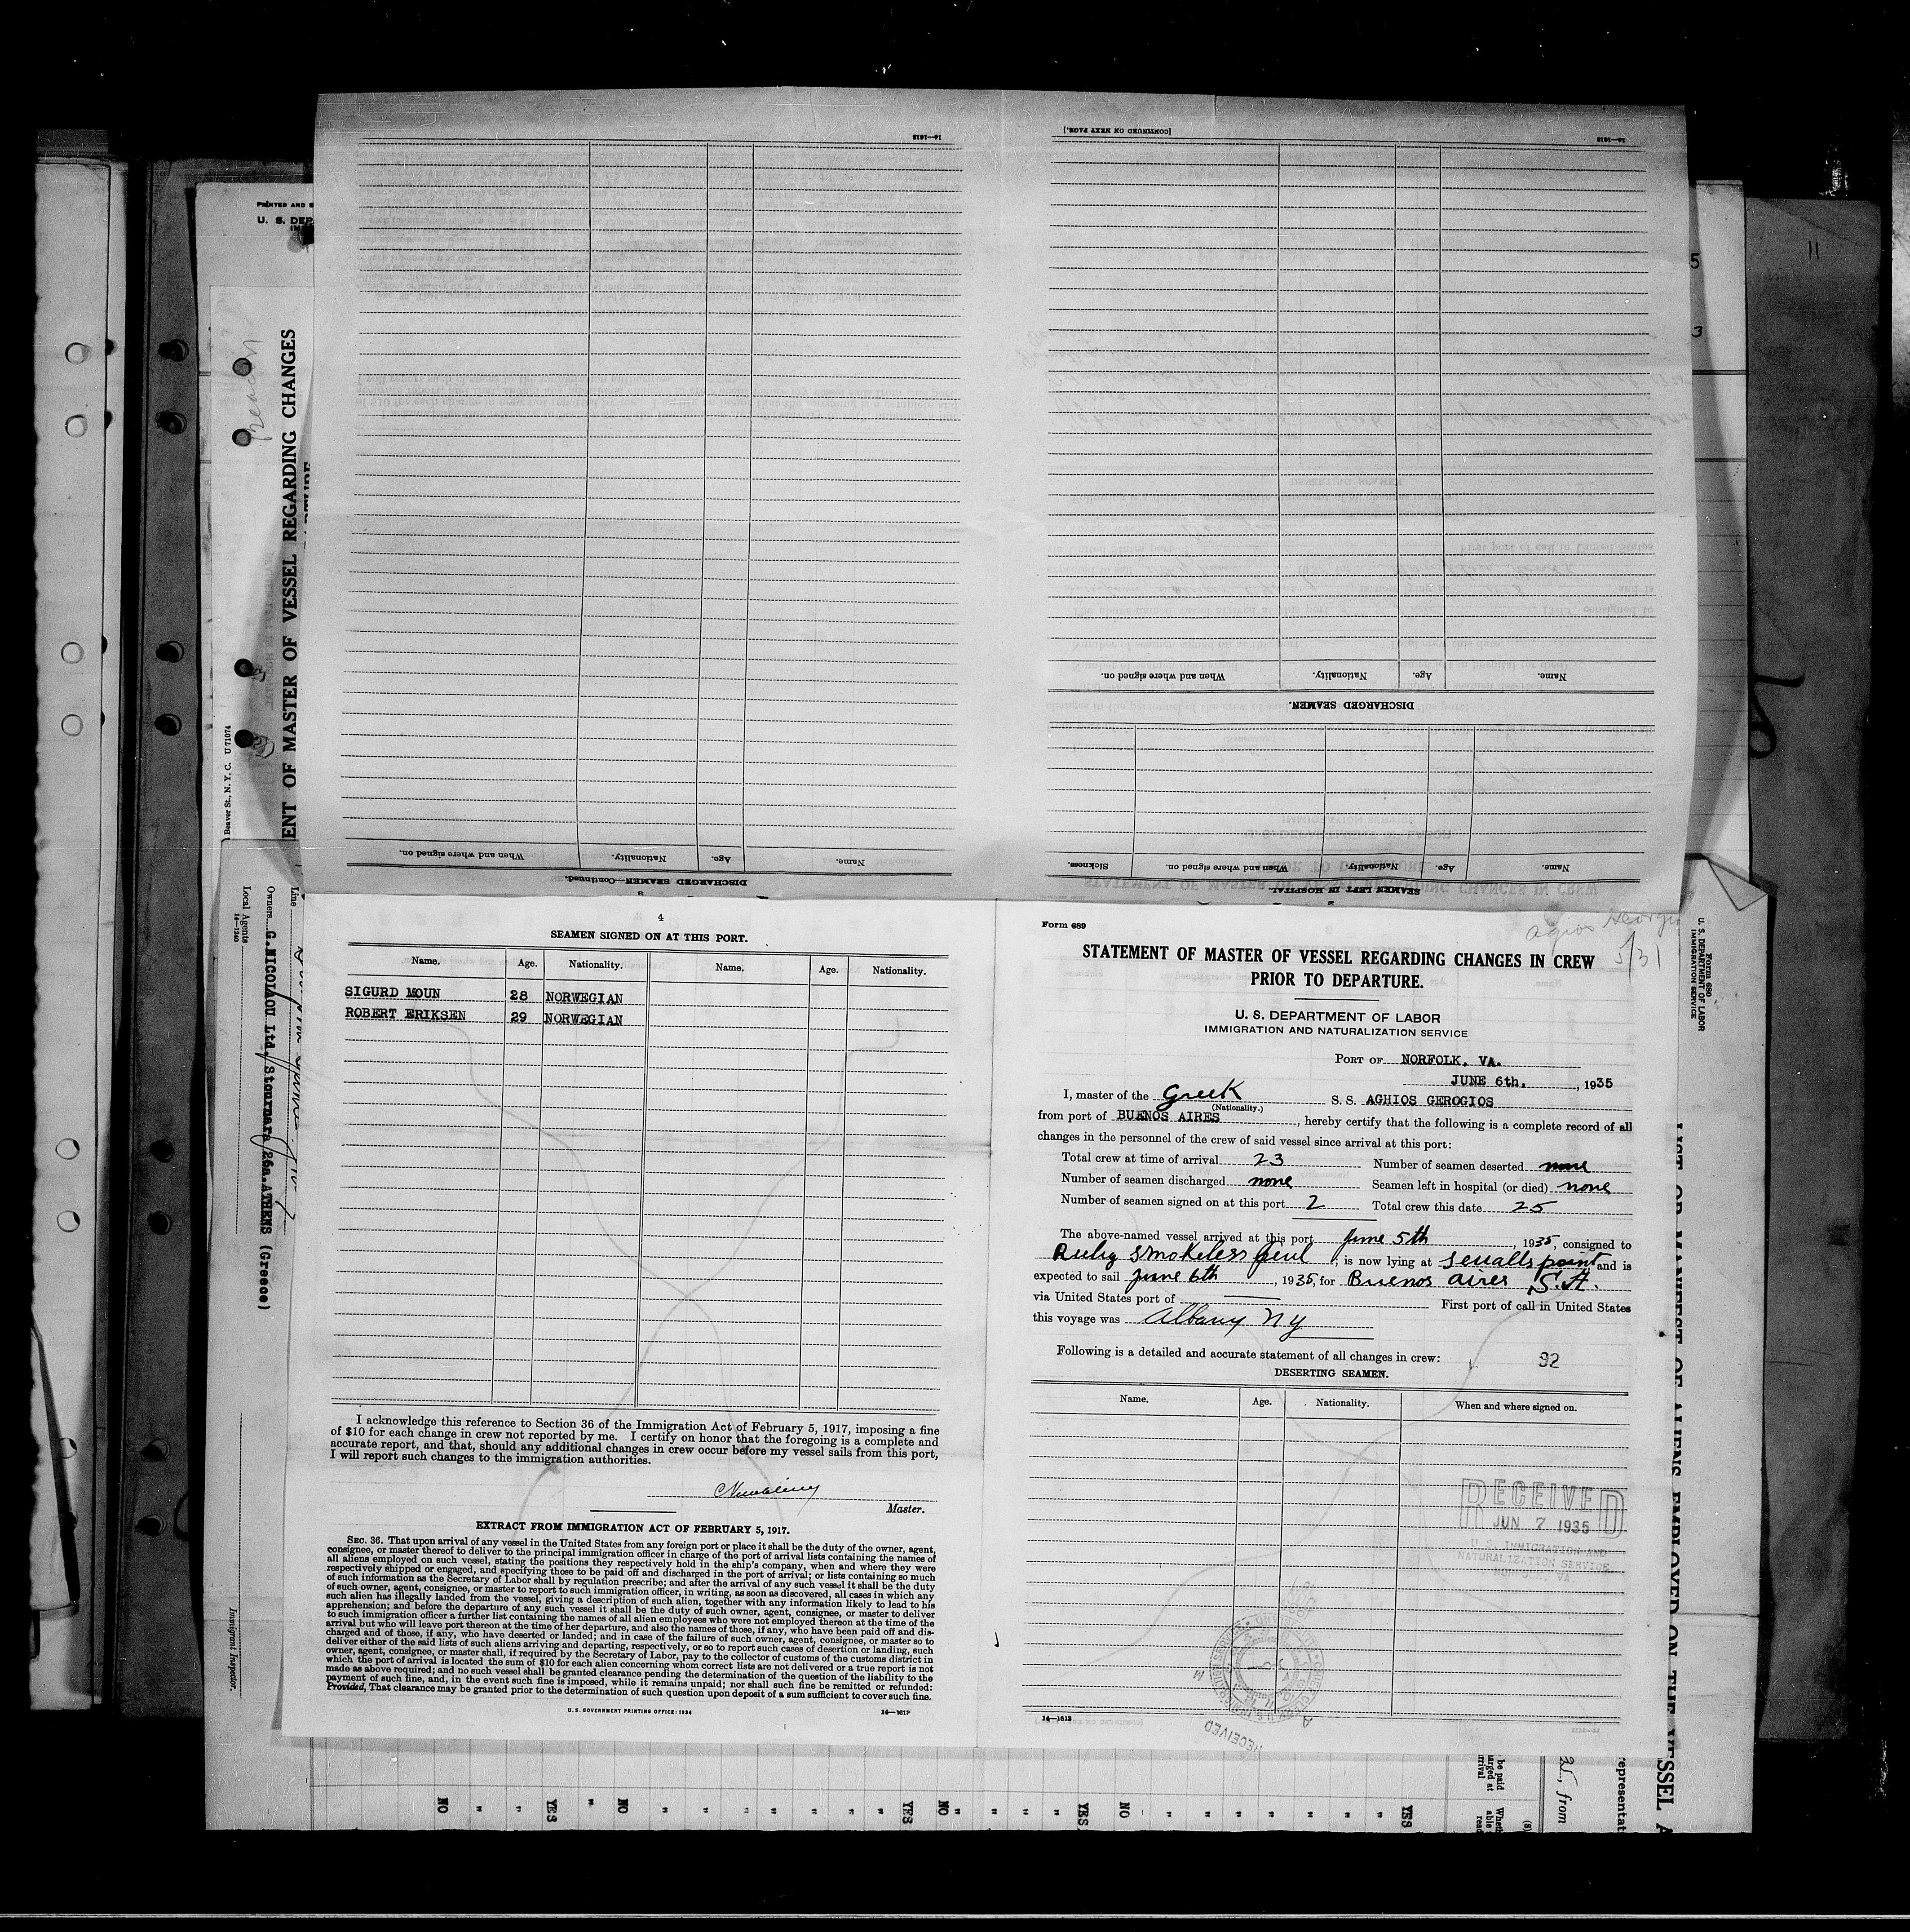 PRINTED AND S
U. S. DEP
IM
Beaver St., N. Y. C. U 71074
ENT OF MASTER OF VESSEL REGARDING CHANGES
Line
Owners G.NICOLAOU Ltd. Stournara 26a. ATHENS (Greece)
Local Agents
14—1240
Immigrant Inspector.
16—1613
[CONTINUED ON NEXT PAGE.]
Name. Age. Nationality. When and where signed on.
DISCHARGED SEAMEN.
Name. Age. Nationality. When and where signed on. Sickness.
SEAMEN LEFT IN HOSPITAL
Name. Age. Nationality. When and where signed on.
DISCHARGED SEAMEN—Continued.
3
4
SEAMEN SIGNED ON AT THIS PORT.
Name. Age. Nationality. Name. Age. Nationality.
SIGURD MOUN 28 NORWEGIAN
ROBERT ERIKSEN 29 NORWEGIAN
I acknowledge this reference to Section 36 of the Immigration Act of February 5, 1917, imposing a fine
of $10 for each change in crew not reported by me. I certify on honor that the foregoing is a complete and
accurate report, and that, should any additional changes in crew occur before my vessel sails from this port,
I will report such changes to the immigration authorities.
Master.
EXTRACT FROM IMMIGRATION ACT OF FEBRUARY 5, 1917.
SEC. 36. That upon arrival of any vessel in the United States from any foreign port or place it shall be the duty of the owner, agent,
consignee, or master thereof to deliver to the principal immigration officer in charge of the port of arrival lists containing the names of
all aliens employed on such vessel, stating the positions they respectively hold in the ship's company, when and where they were
respectively shipped or engaged, and specifying those to be paid off and discharged in the port of arrival; or lists containing so much
of such information as the Secretary of Labor shall by regulation prescribe; and after the arrival of any such vessel it shall be the duty
of such owner, agent, consignee, or master to report to such immigration officer, in writing, as soon as discovered, all cases in which any
such alien has illegally landed from the vessel, giving a description of such alien, together with any information likely to lead to his
apprehension; and before the departure of any such vessel it shall be the duty of such owner, agent, consignee, or master to deliver
to such immigration officer a further list containing the names of all alien employees who were not employed thereon at the time of the
arrival but who will leave port thereon at the time of her departure, and also the names of those, if any, who have been paid off and dis-
charged and of those, if any, who have deserted or landed; and in case of the failure of such owner, agent, consignee, or master so to
deliver either of the said lists of such aliens arriving and departing, respectively, or so to report such cases of desertion or landing, such
owner, agent, consignee, or master shall, if required by the Secretary of Labor, pay to the collector of customs of the customs district in
which the port of arrival is located the sum of $10 for each alien concerning whom correct lists are not delivered or a true report is not
made as above required; and no such vessel shall be granted clearance pending the determination of the question of the liability to the
payment of such fine, and, in the event such fine is imposed, while it remains unpaid; nor shall such fine be remitted or refunded:
Provided, That clearance may be granted prior to the determination of such question upon deposit of a sum sufficient to cover such fine.
U. S. GOVERNMENT PRINTING OFFICE: 1934
Form 689
Agios Georgio
5/31
STATEMENT OF MASTER OF VESSEL REGARDING CHANGES IN CREW
PRIOR TO DEPARTURE.
U. S. DEPARTMENT OF LABOR
IMMIGRATION AND NATURALIZATION SERVICE
PORT OF NORFOLK, VA.
JUNE 6th. , 1935
I, master of the Greek S. S. AGHIOS GEROGIOS
(Nationality.)
from port of BUENOS AIRES , hereby certify that the following is a complete record of all
changes in the personnel of the crew of said vessel since arrival at this port:
Total crew at time of arrival 23 Number of seamen deserted none
Number of seamen discharged none Seamen left in hospital (or died) none
Number of seamen signed on at this port 2 Total crew this date 25
The above-named vessel arrived at this port June 5th , 1935, consigned to
Ruby smokeless fuel , is now lying at sewalls point and is
expected to sail June 6th , 1935, for Buenos aires S.A.
via United States port of First port of call in United States
this voyage was Albany NY
Following is a detailed and accurate statement of all changes in crew: 92
DESERTING SEAMEN.
Name. Age. Nationality. When and where signed on.
RECEIVED
JUN 7 1935
U. S. IMMIGRATION AND
NATURALIZATION SERVICE
NORFOLK, VA.
RECEIVED
14—1613
Form 689
U. S. DEPARTMENT OF LABOR
IMMIGRATION SERVICE
LIST OR MANIFEST OF ALIENS EMPLOYED ON THE VESSEL A
5
3
11
NO " " YES " NO " " " " " " YES NO " " " " YES NO " " " " " " YES
be paid
arged at
rrival
(8)
from
representat